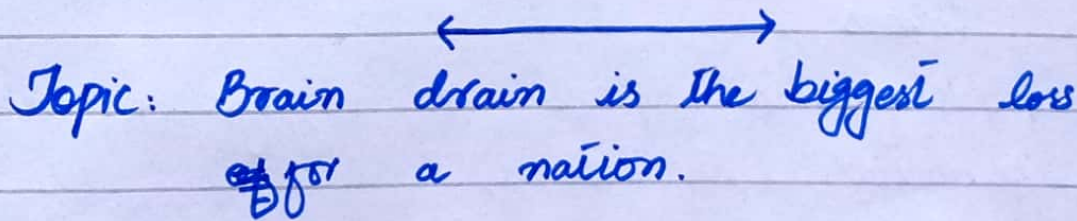 Topic: Brain drain is the biggest loss
for a nation.